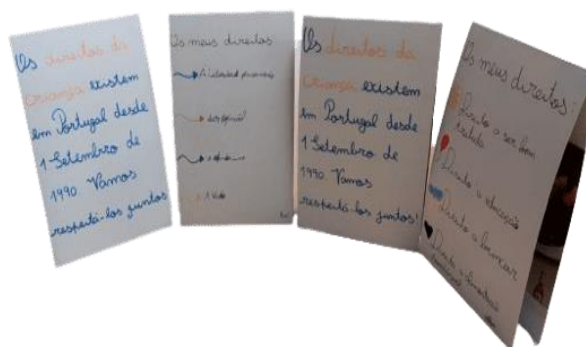 Os direitos da
criança existem
em Portugal desde
1 Setembro de
1990 Vamos
respeitá-los juntos
Os meus direitos
A Vida
Os direitos da
criança existem
em Portugal desde
1 Setembro de
1990 Vamos
respeitá-los juntos!
Os meus direitos:
Direito a ser bem
tratado
Direito a educação
Direito a brincar
Direito a alimentação